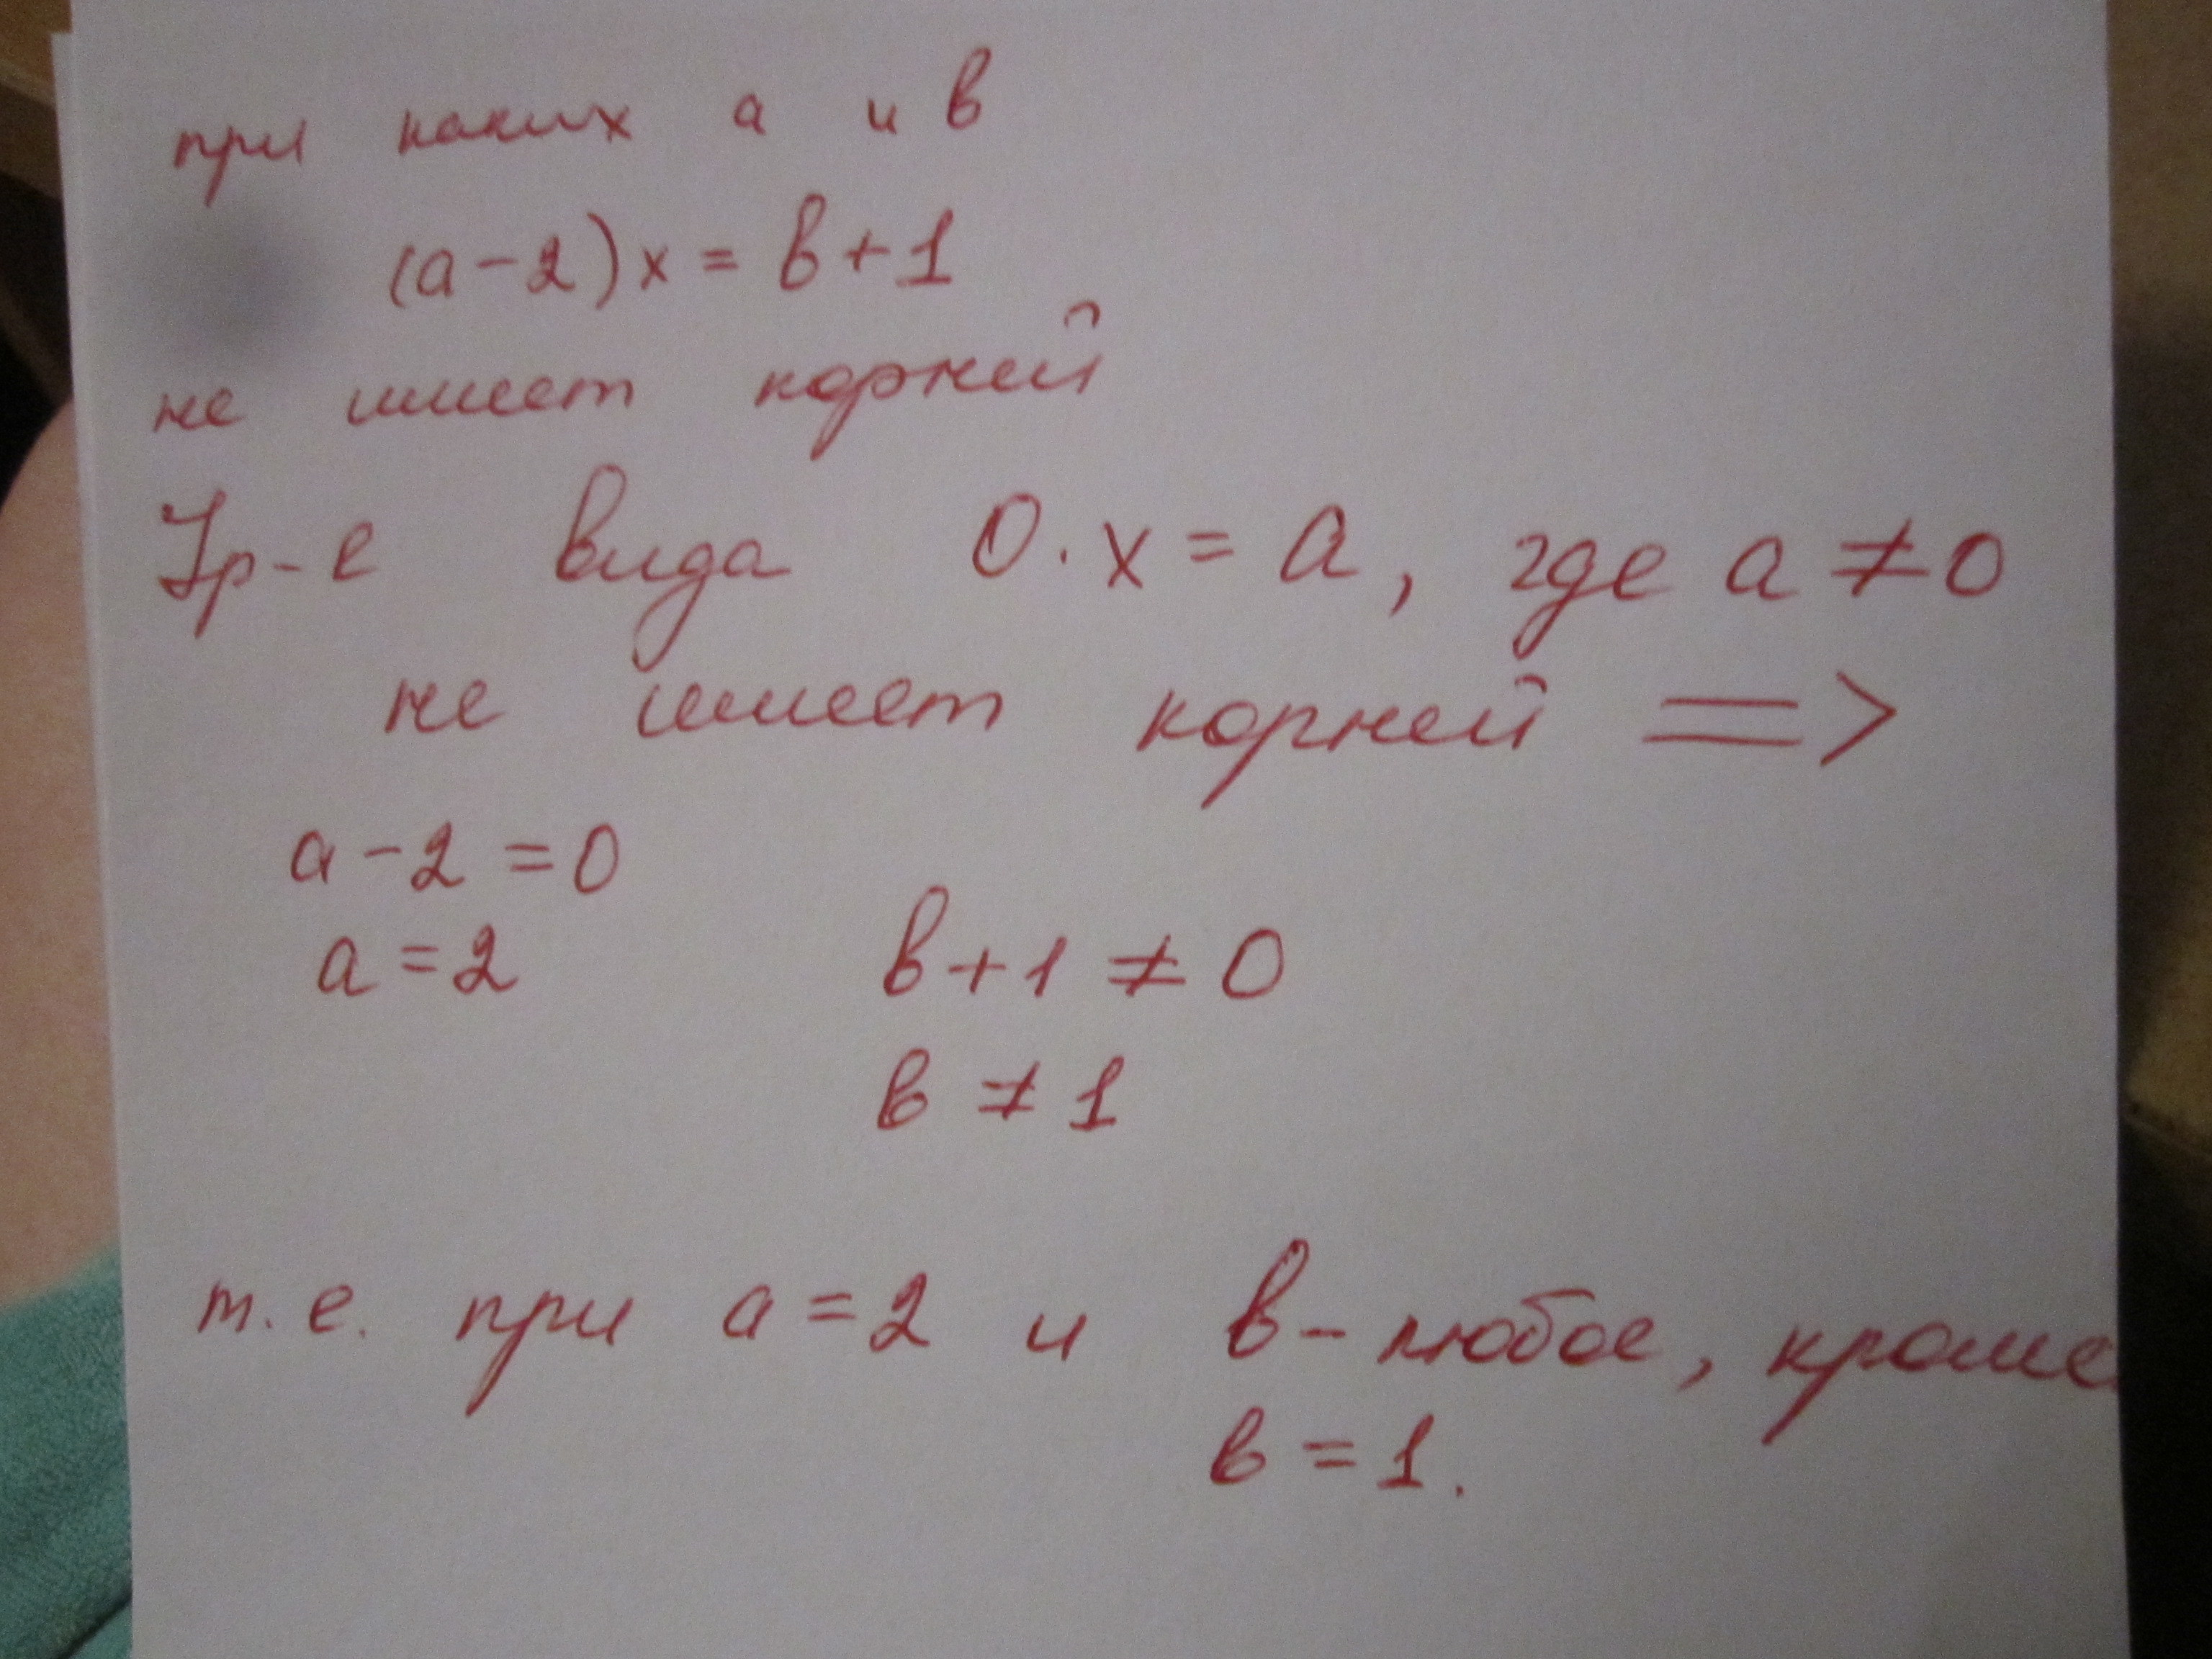 при каких а и в
(а-2)х = в+1
не имеет корней
Ур-е вида 0·х = а, где а ≠ 0
не имеет корней =>
а-2=0
а=2
в+1 ≠ 0
в ≠ 1
т.е. при а=2 и в-любое, кроме
в = 1.